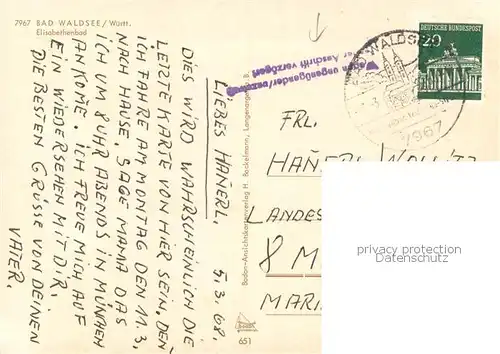 7967 BAD WALDSEE / Württ.
Elisabethenbad
LIEBES HANERL. 5.3.68.
DIES WIRD WAHRSCHEINLICH DIE
LETZTE KARTE VON HIER SEIN, DEN
ICH FAHRE AM MONTAG DEN 11.3.
NACH HAUSE. SAGE MAMA DAS
ICH UM 8 UHR ABENDS IN MÜNCHEN
ANKOME. ICH FREUE MICH AUF
EIN WIEDERSEHEN MIT DIR.
DIE BESTEN GRÜSSE VON DEINEN
VATER.
Boden-Ansichtskartenverlag H. Bockelmann, Langenargen a. B.
651
Anschrift verzögert
BAD WALDSEE
7967
DEUTSCHE BUNDESPOST
20
FRL.
HANERL
LANDES
8 M
MARI
privacy protection
Datenschutz